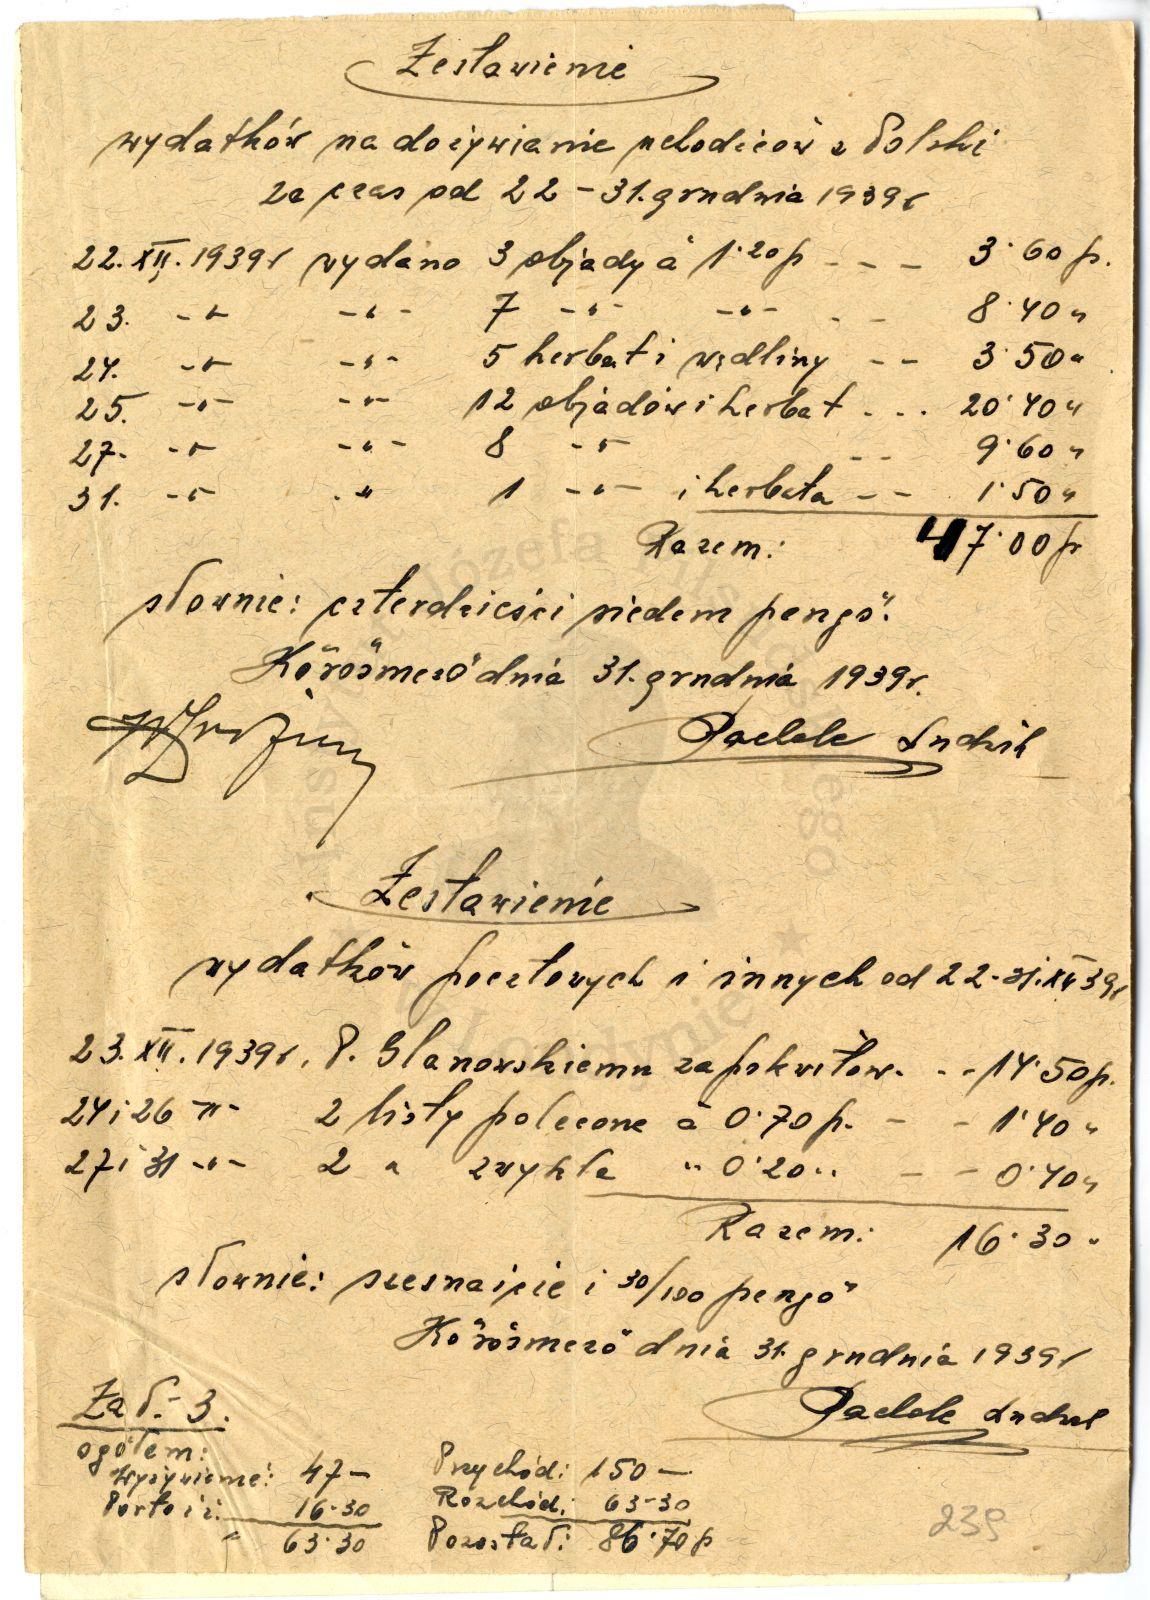 Zestawienie
wydatków na dożywianie uchodźców z Polski
za czas od 22 – 31. grudnia 1939 r
22. XII. 1939 r wydano 3 objady á 1·20 p - - - 3·60 p.
23. -"- -"- 7 -"- -"- - - 8·40 "
24. -"- -"- 5 herbat i wędliny - - 3·50 "
25. -"- -"- 12 objadów i herbat - - - 20·40 "
27. -"- -"- 8 -"- - - 9·60 "
31. -"- -"- 1 -"- i herbata - - 1·50 "
Razem: 47·00 p
słownie: czterdzieści siedem pengö.
Körösmező dnia 31. grudnia 1939 r.
Zestawienie
wydatków pocztowych i innych od 22-31. XII 39 r
23. XII. 1939 r. P. Slanowskiemu za pokwitow. - - 14·50 p.
24 i 26 -"- 2 listy polecone á 0·70 p. - - 1·40 "
27 i 31 -"- 2 " zwykłe " 0·20 " - - 0·40 "
Razem: 16·30 "
słownie: szesnaście i 30/100 pengö
Körösmező dnia 31. grudnia 1939 r
Zał. 3.
ogółem:
Wyżywienie: 47 — Przychód: 150 —
Porto i i: 16-30 Rozchód: 63-30
" 63·30 Pozostał: 86·70 p
239
Józefa
Londynie